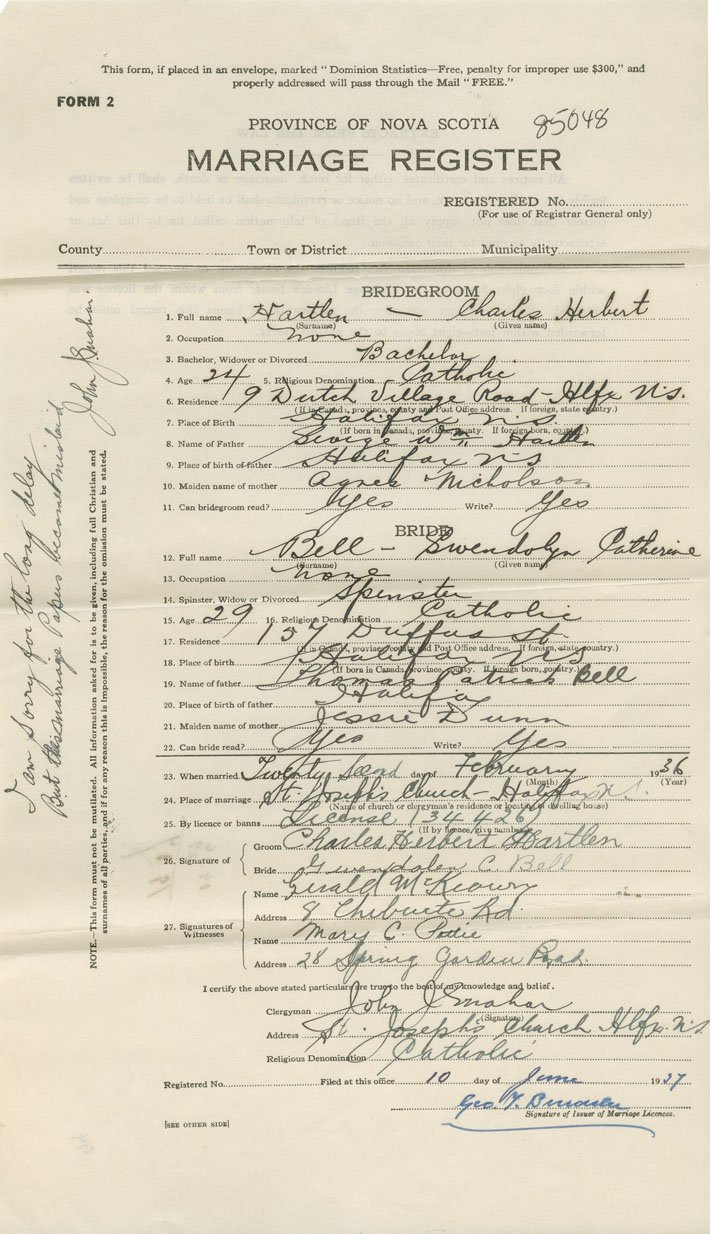 This form, if placed in an envelope, marked "Dominion Statistics—Free, penalty for improper use $300," and
properly addressed will pass through the Mail "FREE."
FORM 2
PROVINCE OF NOVA SCOTIA 85048
MARRIAGE REGISTER
REGISTERED No.
(For use of Registrar General only)
County Town or District Municipality
BRIDEGROOM
1. Full name Hartlen — Charles Herbert
(Surname) (Given name)
2. Occupation none
3. Bachelor, Widower or Divorced Bachelor
4. Age 24 5. Religious Denomination Catholic
6. Residence 9 Dutch Village Road - Hlfx N.S.
(If in Canada, province, county and Post Office address. If foreign, state country.)
7. Place of Birth Halifax N.S.
(If born in Canada, province, county. If foreign born, country.)
8. Name of Father George Wm. Hartlen
9. Place of birth of father Halifax N.S
10. Maiden name of mother Agnes Nicholson
11. Can bridegroom read? Yes Write? Yes
BRIDE
12. Full name Bell - Gwendolyn Catherine
(Surname) (Given name)
13. Occupation none
14. Spinster, Widow or Divorced Spinster
15. Age 29 16. Religious Denomination Catholic
17. Residence 157 Duffus St.
(If in Canada, province, county and Post Office address. If foreign, state country.)
18. Place of birth Halifax N.S
(If born in Canada, province, county. If foreign born, country.)
19. Name of father Thomas Patrick Bell
20. Place of birth of father Halifax
21. Maiden name of mother Jessie Dunn
22. Can bride read? Yes Write? Yes
23. When married Twenty Second day of February 1936
(Month) (Year)
24. Place of marriage St. Joseph's Church - Halifax N.S.
(Name of church or clergyman's residence or location of dwelling house)
25. By licence or banns License (34426)
(If by licence, give number)
26. Signature of
Groom Charles Herbert Hartlen
Bride Gwendolen C. Bell
27. Signatures of
Witnesses
Name Gerald McKeown
Address 8 Chebucto Rd.
Name Mary C. Pottie
Address 28 Spring Garden Road.
I certify the above stated particulars are true to the best of my knowledge and belief.
Clergyman John J. Mahar
(Signature)
Address St. Joseph's Church Hlfx. N.S
Religious Denomination Catholic
Registered No. Filed at this office 10 day of June 1937
Geo. T.
Signature of Issuer of Marriage Licences.
[SEE OTHER SIDE]
NOTE.—This form must not be mutilated. All information asked for is to be given, including full Christian and
surnames of all parties, and if for any reason this is impossible, the reason for the omission must be stated.
I am Sorry for the long delay
But this marriage Papers become mislaid
John J. Mahar.